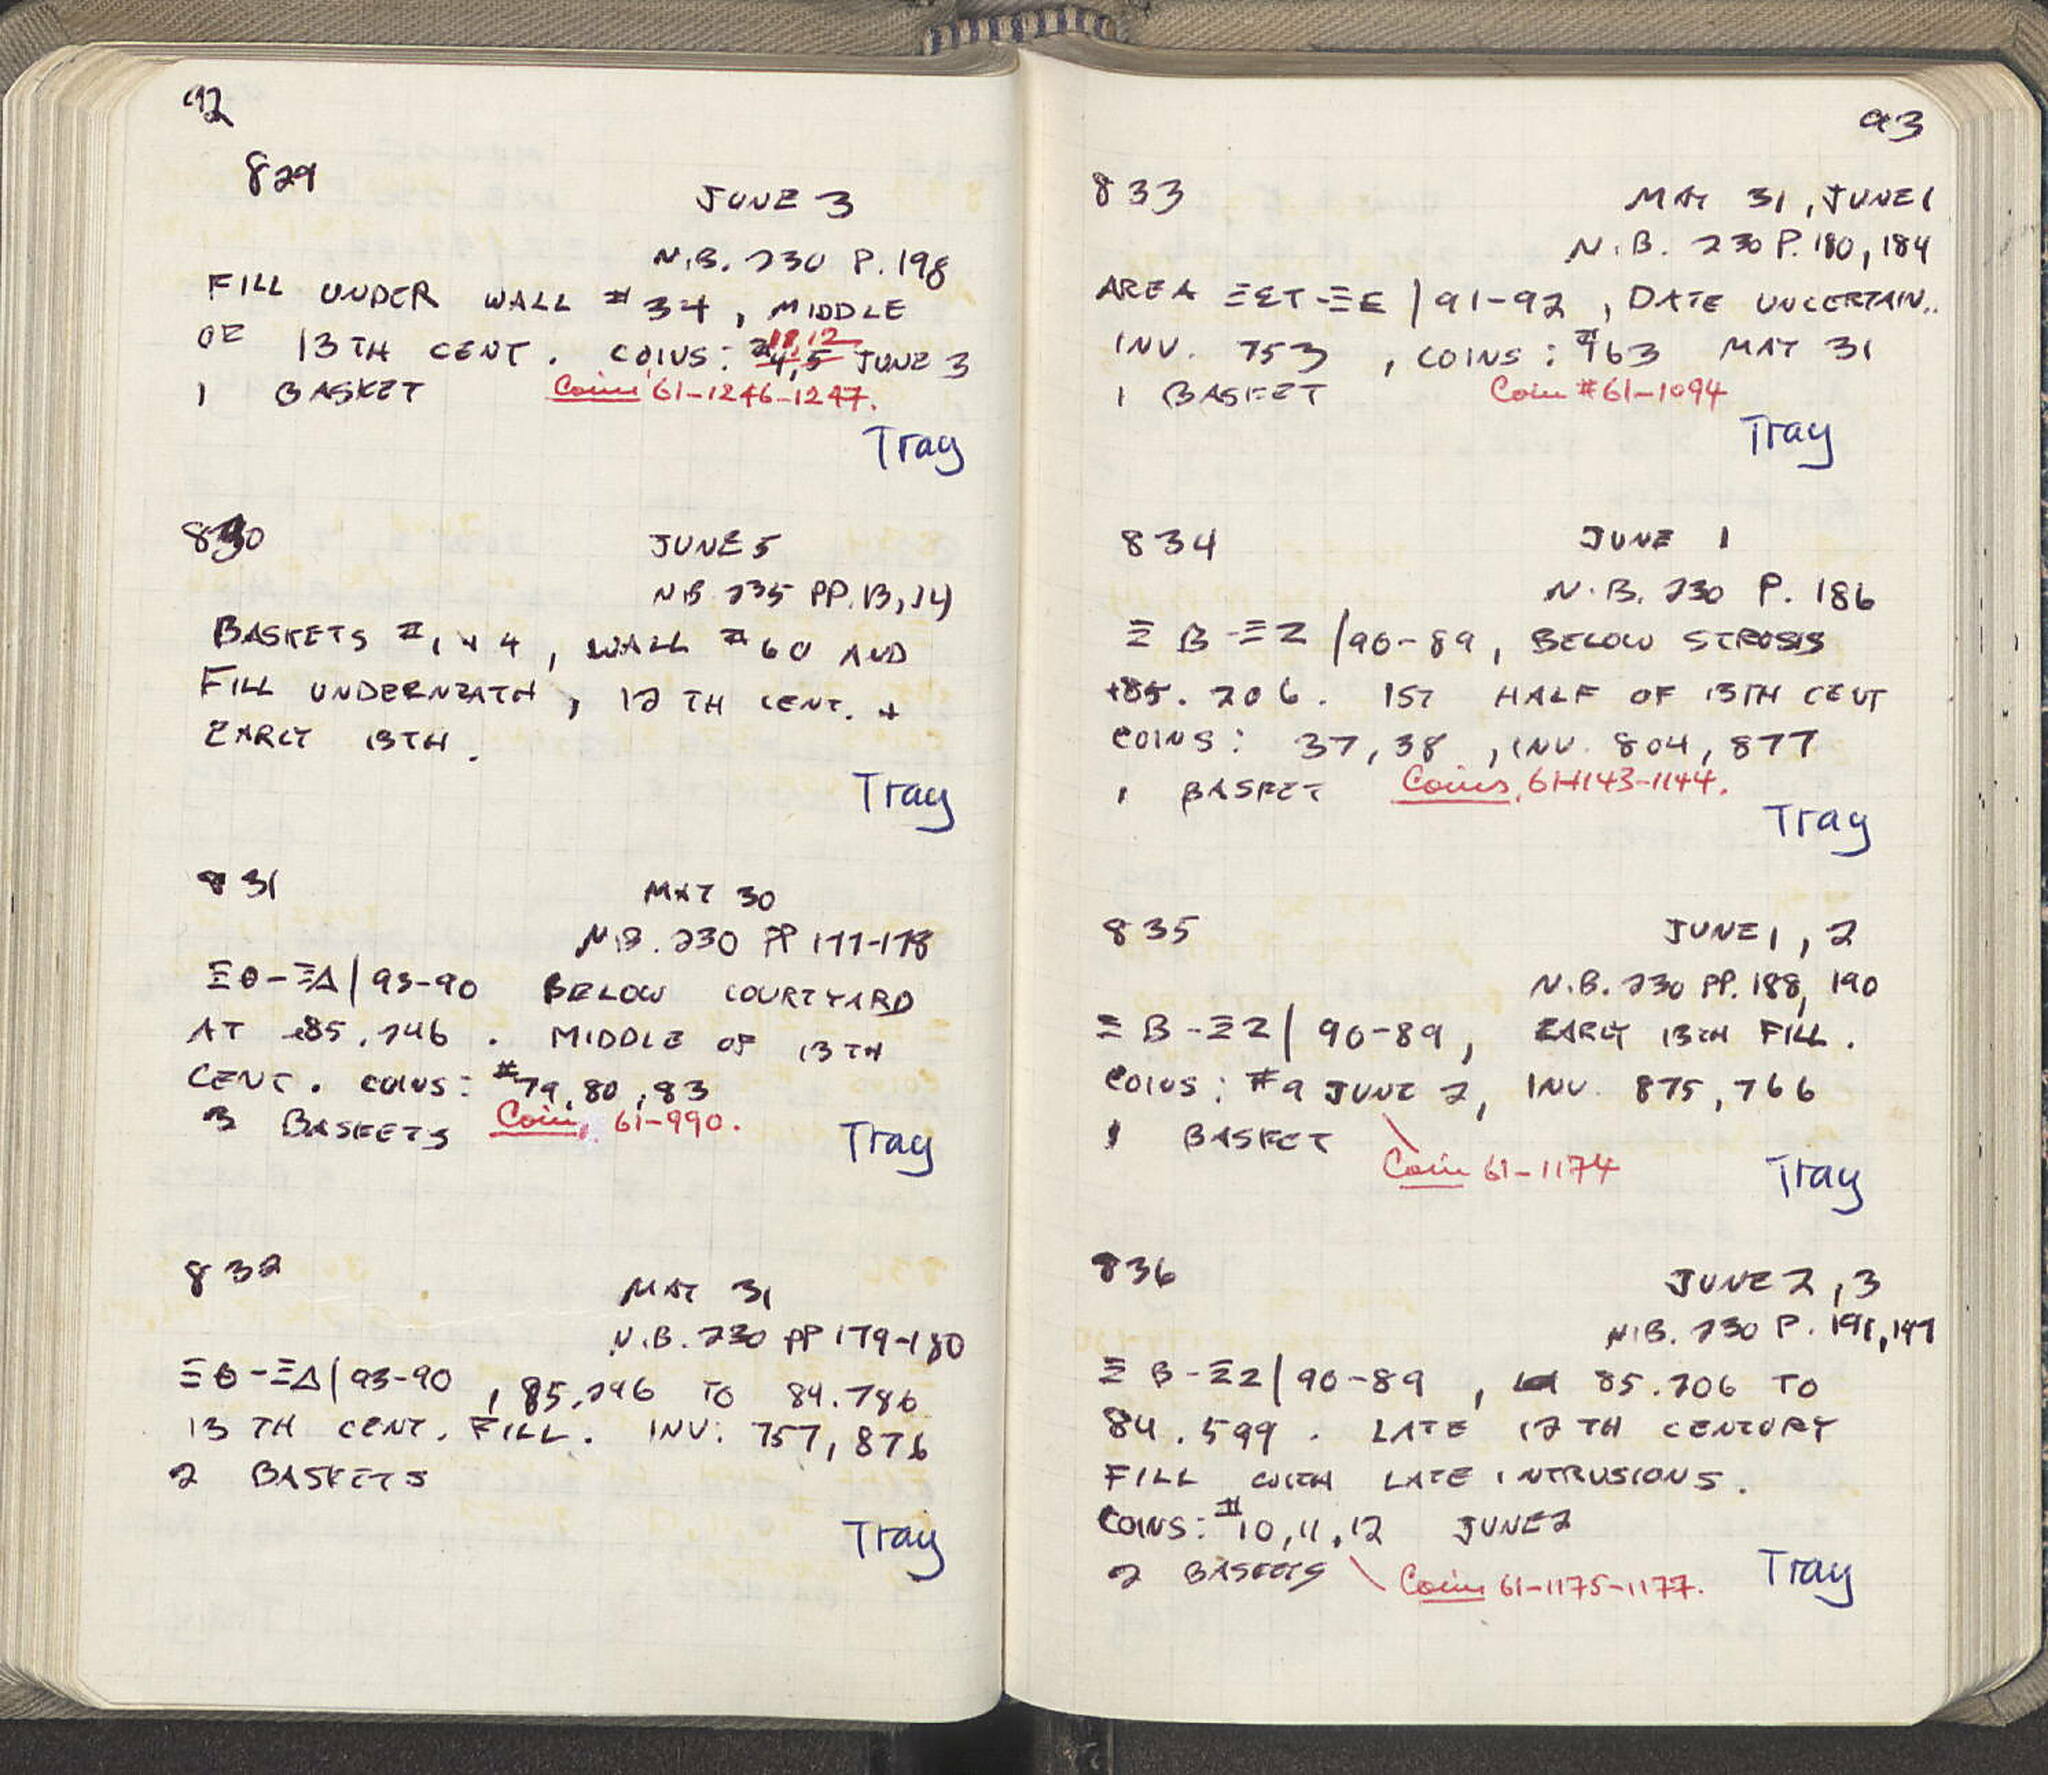 92
829
JUNE 3
N.B. 230 P. 198
FILL UNDER WALL # 34, MIDDLE
OF 13TH CENT. COINS: # 4, 5 JUNE 3
11, 12
1 BASKET Coins 61-1246-1247.
Tray
830
JUNE 5
N.B. 235 PP. 13, 14
BASKETS # 1 + 4, WALL # 60 AND
FILL UNDERNEATH, 12 TH CENT. +
EARLY 13TH.
Tray
831
MAY 30
N.B. 230 PP 177-178
ΞΘ-ΞΔ/93-90 BELOW COURTYARD
AT +85.246. MIDDLE OF 13TH
CENT. COINS: #79, 80, 83
3 BASKETS Coin, 61-990.
Tray
832
MAY 31
N.B. 230 PP 179-180
ΞΘ-ΞΔ/93-90, 85.246 TO 84.786
13 TH CENT. FILL. INV: 757, 876
2 BASKETS
Tray
93
833
MAY 31, JUNE 1
N.B. 230 P. 180, 184
AREA ΞΣΤ-ΞΕ/91-92, DATE UNCERTAIN..
INV. 753, COINS: #163 MAY 31
1 BASKET Coin #61-1094
Tray
834
JUNE 1
N.B. 230 P. 186
Ξ Β-ΞΖ/90-89, BELOW STROSIS
+85.206. 1ST HALF OF 13TH CENT
COINS: 37, 38, INV. 804, 877
1 BASKET Coins, 61-1143-1144.
Tray
835
JUNE 1, 2
N.B. 230 PP. 188, 190
Ξ Β-ΞΖ/90-89, EARLY 13TH FILL.
COINS: #9 JUNE 2, INV. 875, 766
1 BASKET
Coin 61-1174
Tray
836
JUNE 2, 3
N.B. 230 P. 191,
Ξ Β-ΞΖ/90-89, 85.206 TO
84.599. LATE 12TH CENTURY
FILL WITH LATE INTRUSIONS.
COINS: #10, 11, 12 JUNE 2
2 BASKETS Coins 61-1175-1177.
Tray